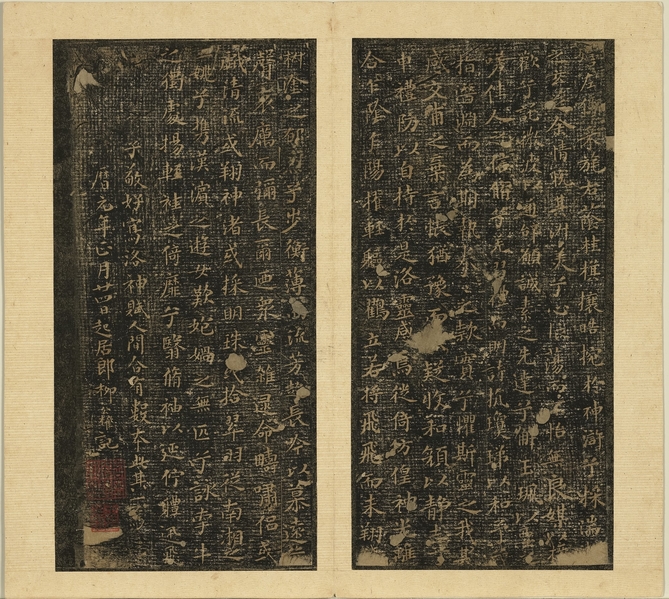 采旄右蔭桂旗攘皓捥於神滸兮採湍
余情悅其淑美兮心振蕩而不怡無良媒以接
歡兮託微波以通辭願誠素之先達兮解玉珮以要之
嗟佳人之信脩羌習禮而明詩抗瓊珶以和予兮
指潛淵而為期執拳拳之款實兮懼斯靈之我欺
感交甫之棄言悵猶豫而狐疑收和顏以靜志兮
申禮防以自持於是洛靈感焉徙倚仿偟神光離
合乍陰乍陽擢輕軀以鶴立若將飛飛而未翔
椒塗之郁烈兮步衡薄而流芳超長吟以慕遠兮
聲哀厲而彌長爾迺眾靈雜遝命疇嘯侶或
戲清流或翔神渚或採明珠或拾翠羽從南湘之
二姚兮攜漢濱之遊女歎媧之無匹兮詠牽牛
之獨處揚輕袿之倚靡兮翳脩袖以延佇體迅飛
子敬好寫洛神賦人間合有數本此其一焉寶
曆元年正月廿四日起居郎柳公權記